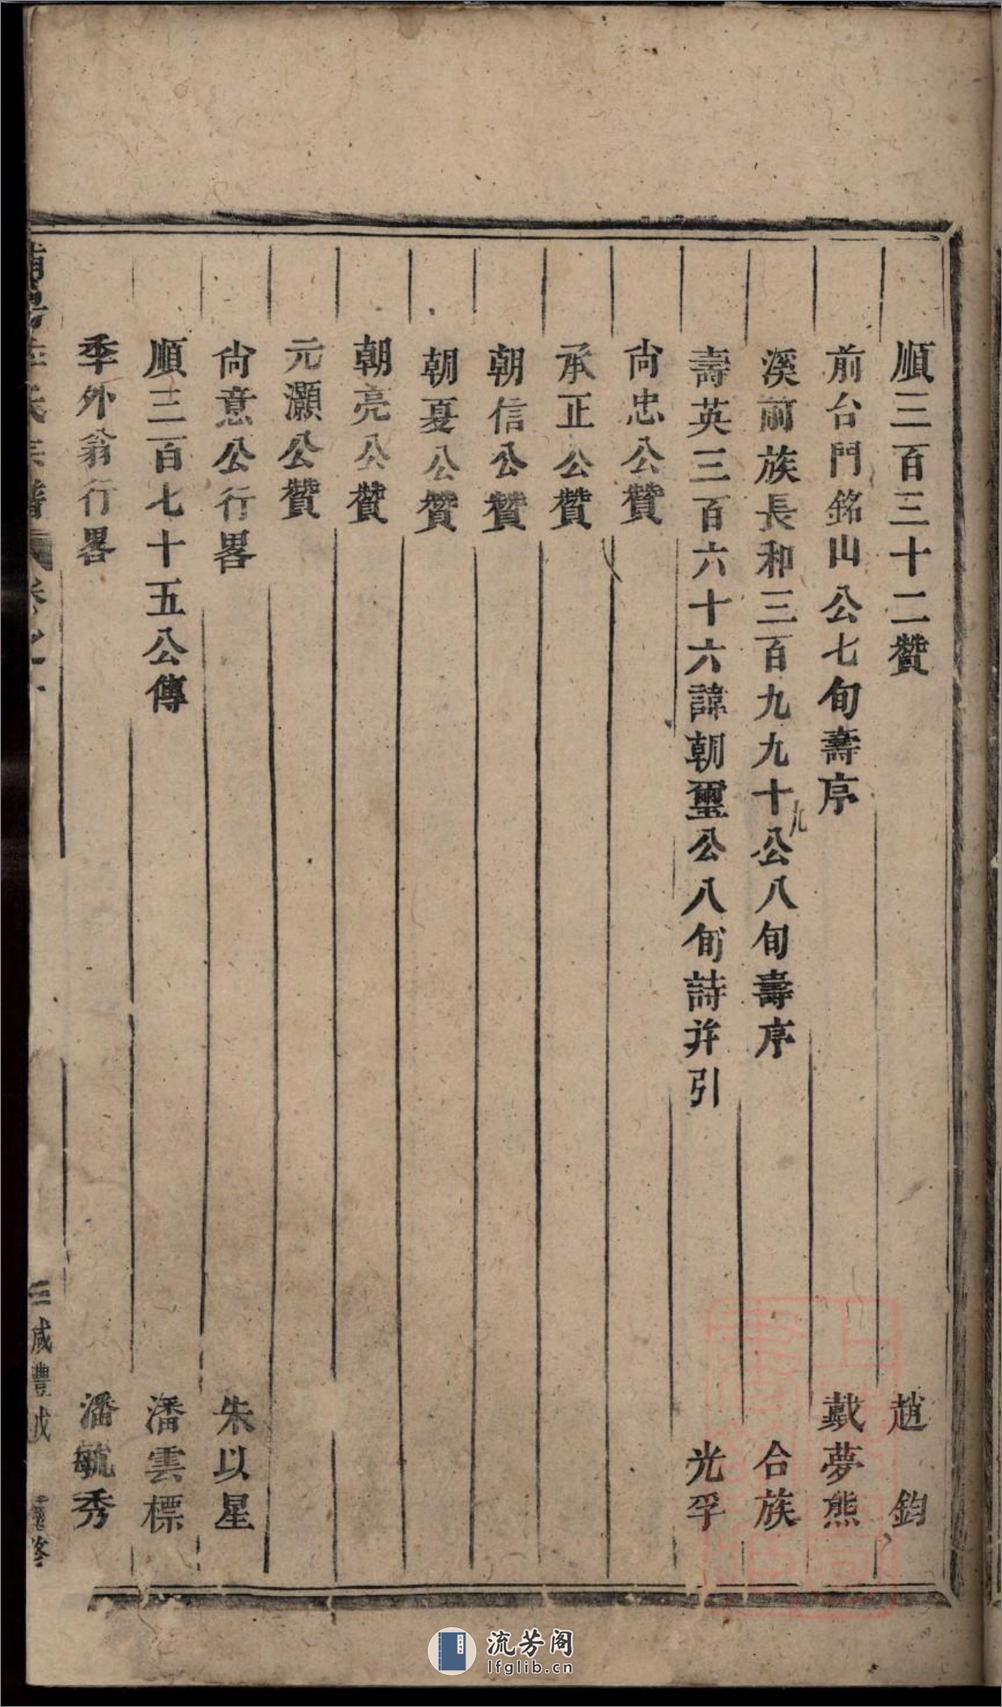 順三百三十二贊 趙鈞
前台門銘山公七旬壽序 戴夢熊
溪前族長和三百九九十公八旬壽序 合族
九
壽英三百六十六諱朝璽公八旬詩并引 光孚
尙忠公贊
承正公贊
朝信公贊
朝夏公贊
朝亮公贊
元灝公贊
尙意公行畧 朱以星
順三百七十五公傳 潘雲標
季外翁行畧 潘毓秀
氏宗譜 卷之一 三 咸豐戊 重修
流芳阁
lfglib.cn